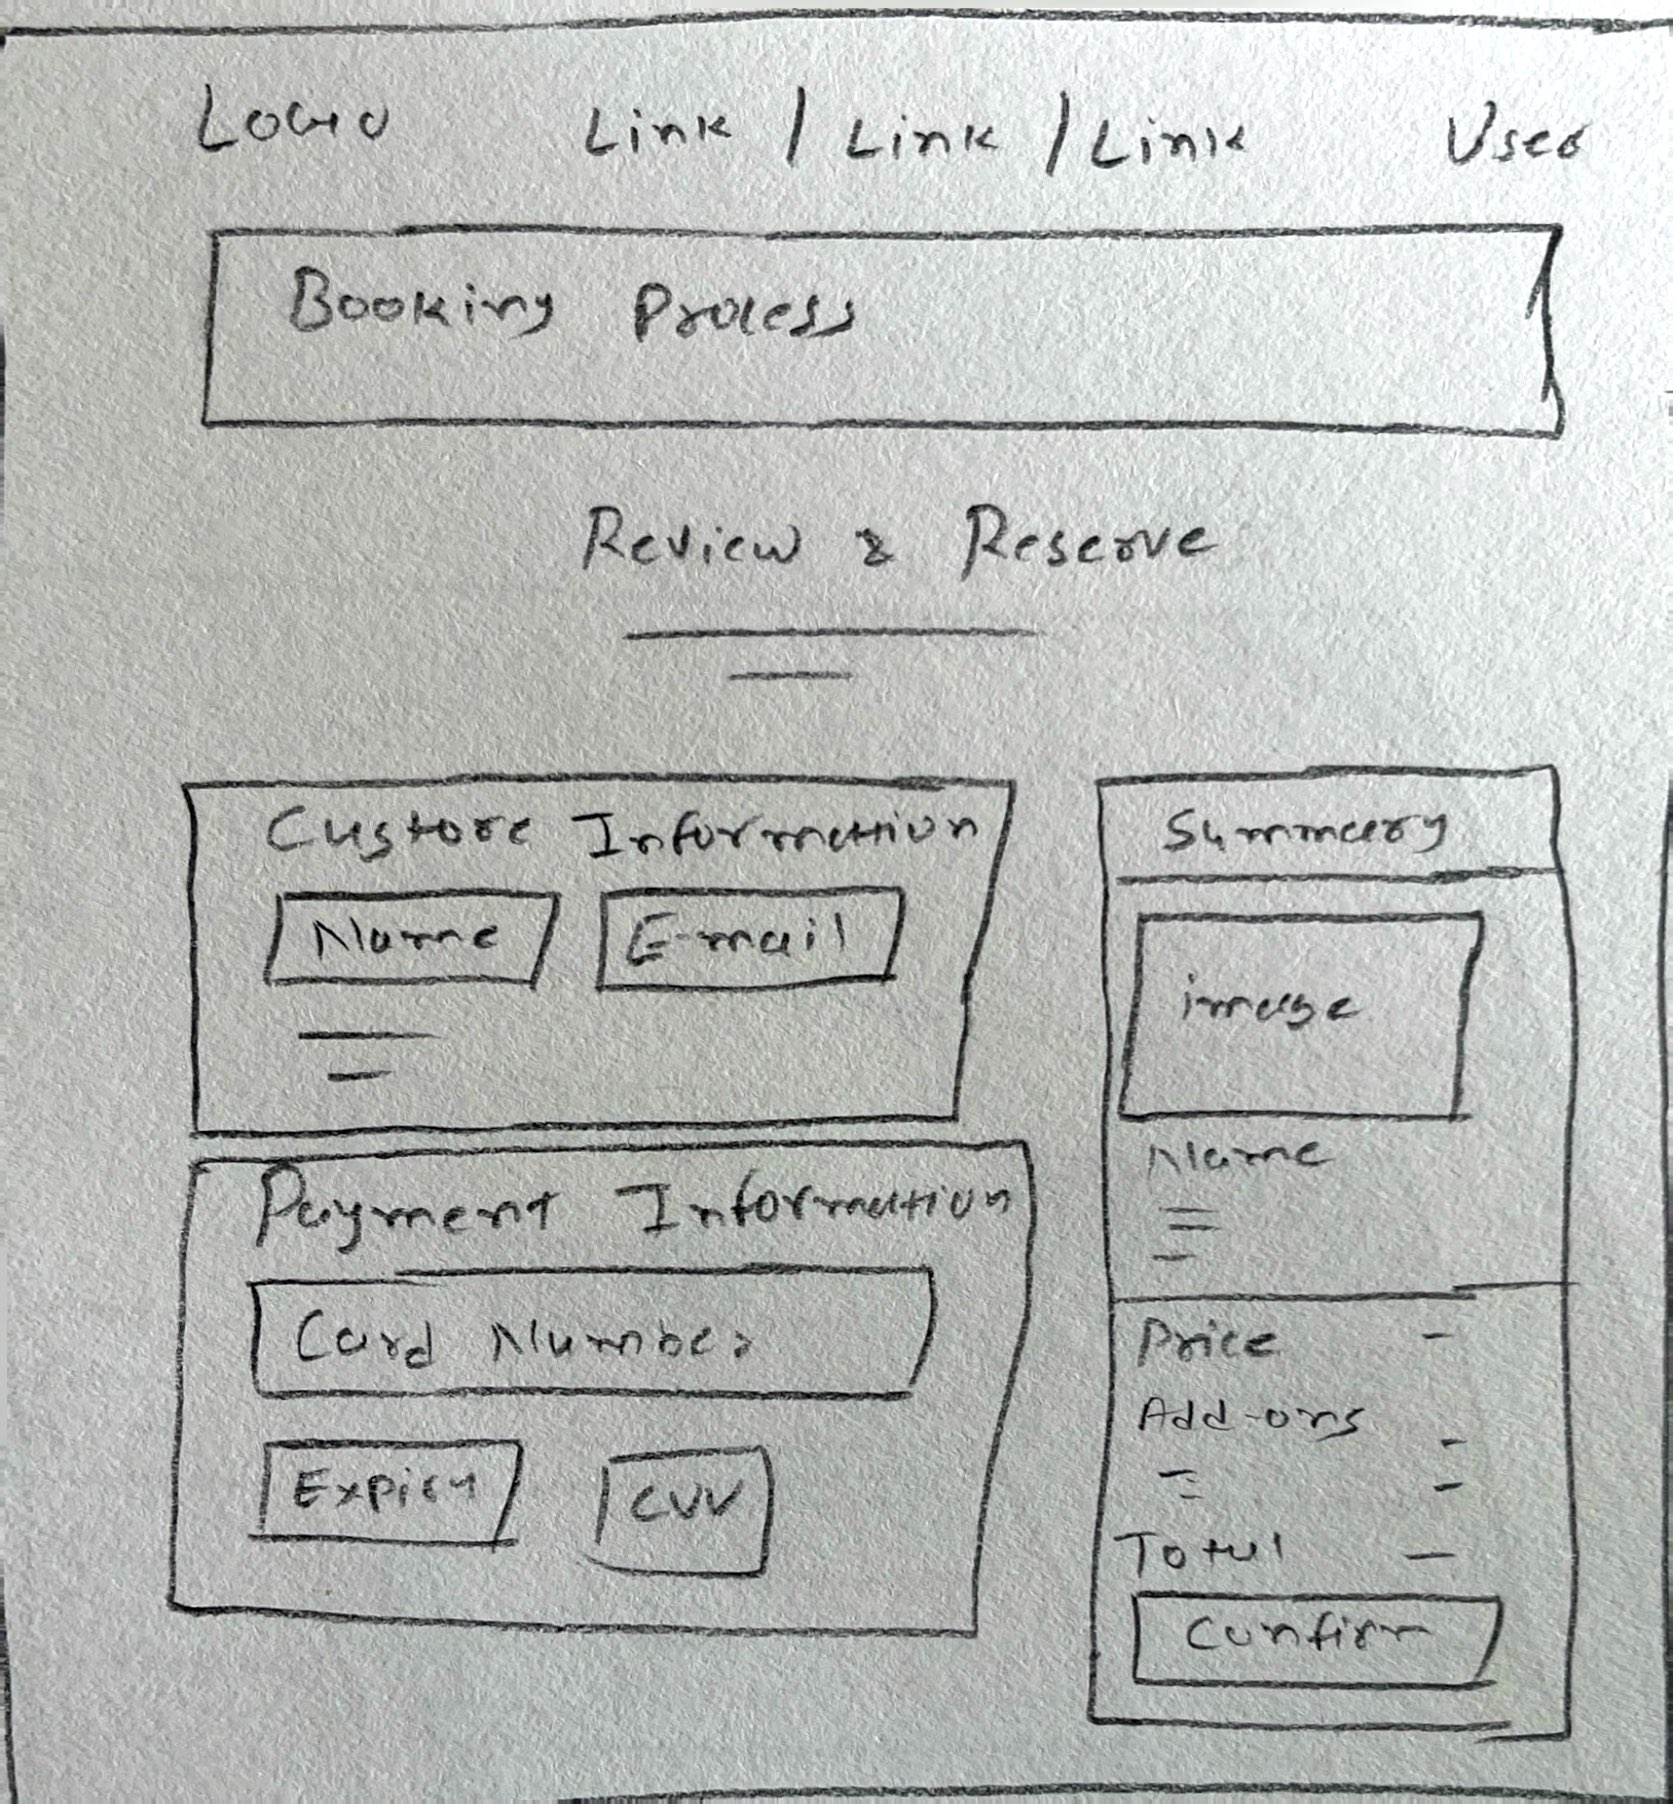 Logo Link / Link / Link User
Booking Process
Review & Reserve
Custore Information
Name E-mail
Summary
image
Name
Payment Information
Card Number
Expiry CVV
Price -
Add-ons -
Total -
Confirm